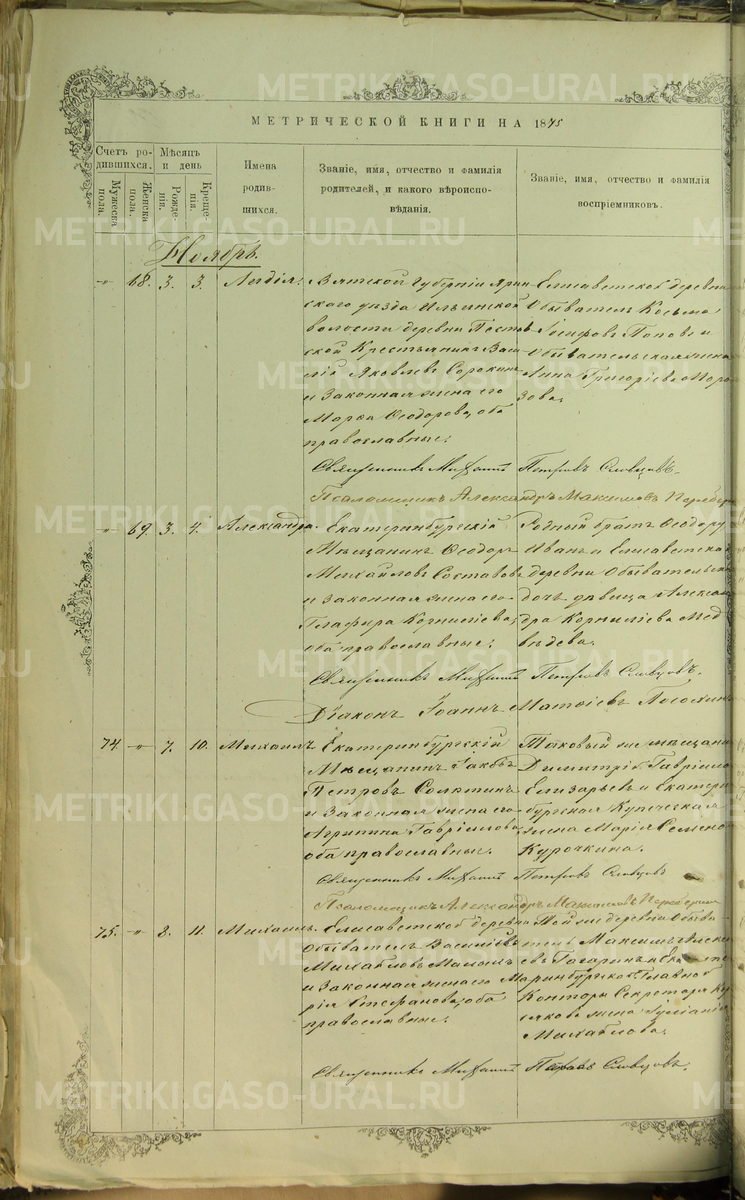 МЕТРИЧЕСКОЙ КНИГИ НА 1875
Счетъ ро-
дившихся.
Мужеска
пола.
Женска
пола.
Мѣсяцъ
и день
Рожде-
нія.
Креще-
нія.
Имена
родив-
шихся.
Званіе, имя, отчество и фамилія
родителей, и какого вѣроиспо-
вѣданія.
Званіе, имя, отчество и фамилія
воспріемниковъ.
Ноябрь.
68. 3. 3. Лидія:
Вятской Губерніи Яран
скаго уѣзда Ильинской
волости деревни
ской Крестьянинъ Васи
лій Яковлевъ Сорокинъ
и законная жена его
Марѳа Ѳеодорова, оба
православные:
Елисаветской деревни
Обыватель Косьма
Іосифовъ Поповъ и
Обывательская жена
Анна Григоріева Моро
зова.
Священникъ Михаилъ Петровъ Словцовъ.
Псаломщикъ Александръ Максимовъ
69. 3. 4. Александра.
Екатеринбургскій
Мѣщанинъ Ѳеодоръ
Михайловъ
и законная жена его
Глафира Корниліева,
оба православные:
Родный братъ Ѳеодору
Иванъ и Елисаветской
деревни Обывательска
дочь дѣвица Алексан
дра Корниліева Мед
вѣдева.
Священникъ Михаилъ Петровъ Словцовъ.
Діаконъ Іоаннъ Матѳіевъ
74 7. 10. Михаилъ
Екатеринбургскій
Мѣщанинъ Іаковъ
Петровъ
и законная жена его
Агрипина Гавріилова,
оба православные.
Таковый же мѣщанинъ
Димитрій Гавріило
Елизарьевъ и Екатерин
бургская Купеческая
жена Марія Семено
Курочкина.
Священникъ Михаилъ Петровъ Словцовъ
Псаломщикъ Александръ Максимовъ
75. 8. 11. Михаилъ.
Елисаветской деревни
Обыватель Василій
Михайловъ
и законная жена его Ма
рія Стефанова, оба
православные:
Той же деревни Обыва
тель Максимъ Алексѣ
евъ Гагаринъ и Екате
ринбургской Главной
Конторы Секретаря
жена Іуліанія
Михайлова.
Священникъ Михаилъ Петровъ Словцовъ.
METRIKI.GASO-URAL.RU